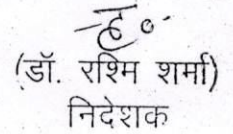 ह०
(डॉ. रश्मि शर्मा)
निदेशक